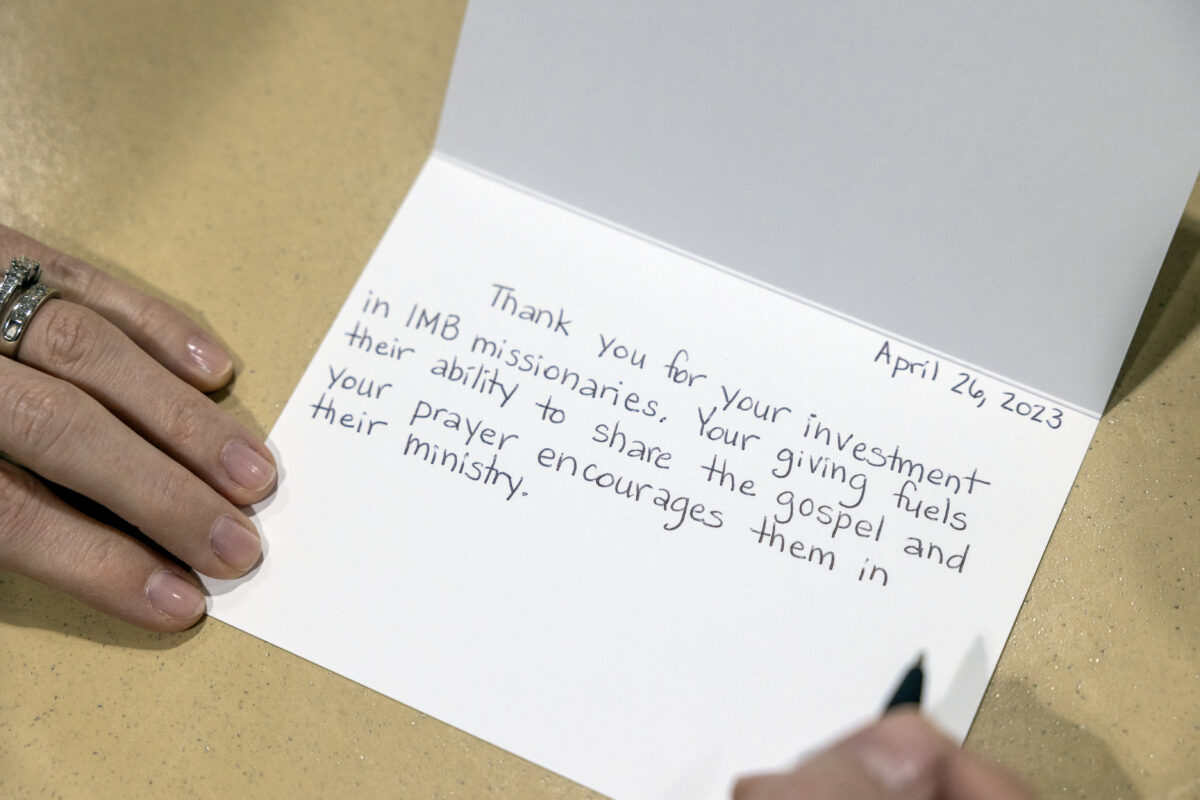 April 26, 2023
Thank you for your investment
in IMB missionaries. Your giving fuels
their ability to share the gospel and
your prayer encourages them in
their ministry.